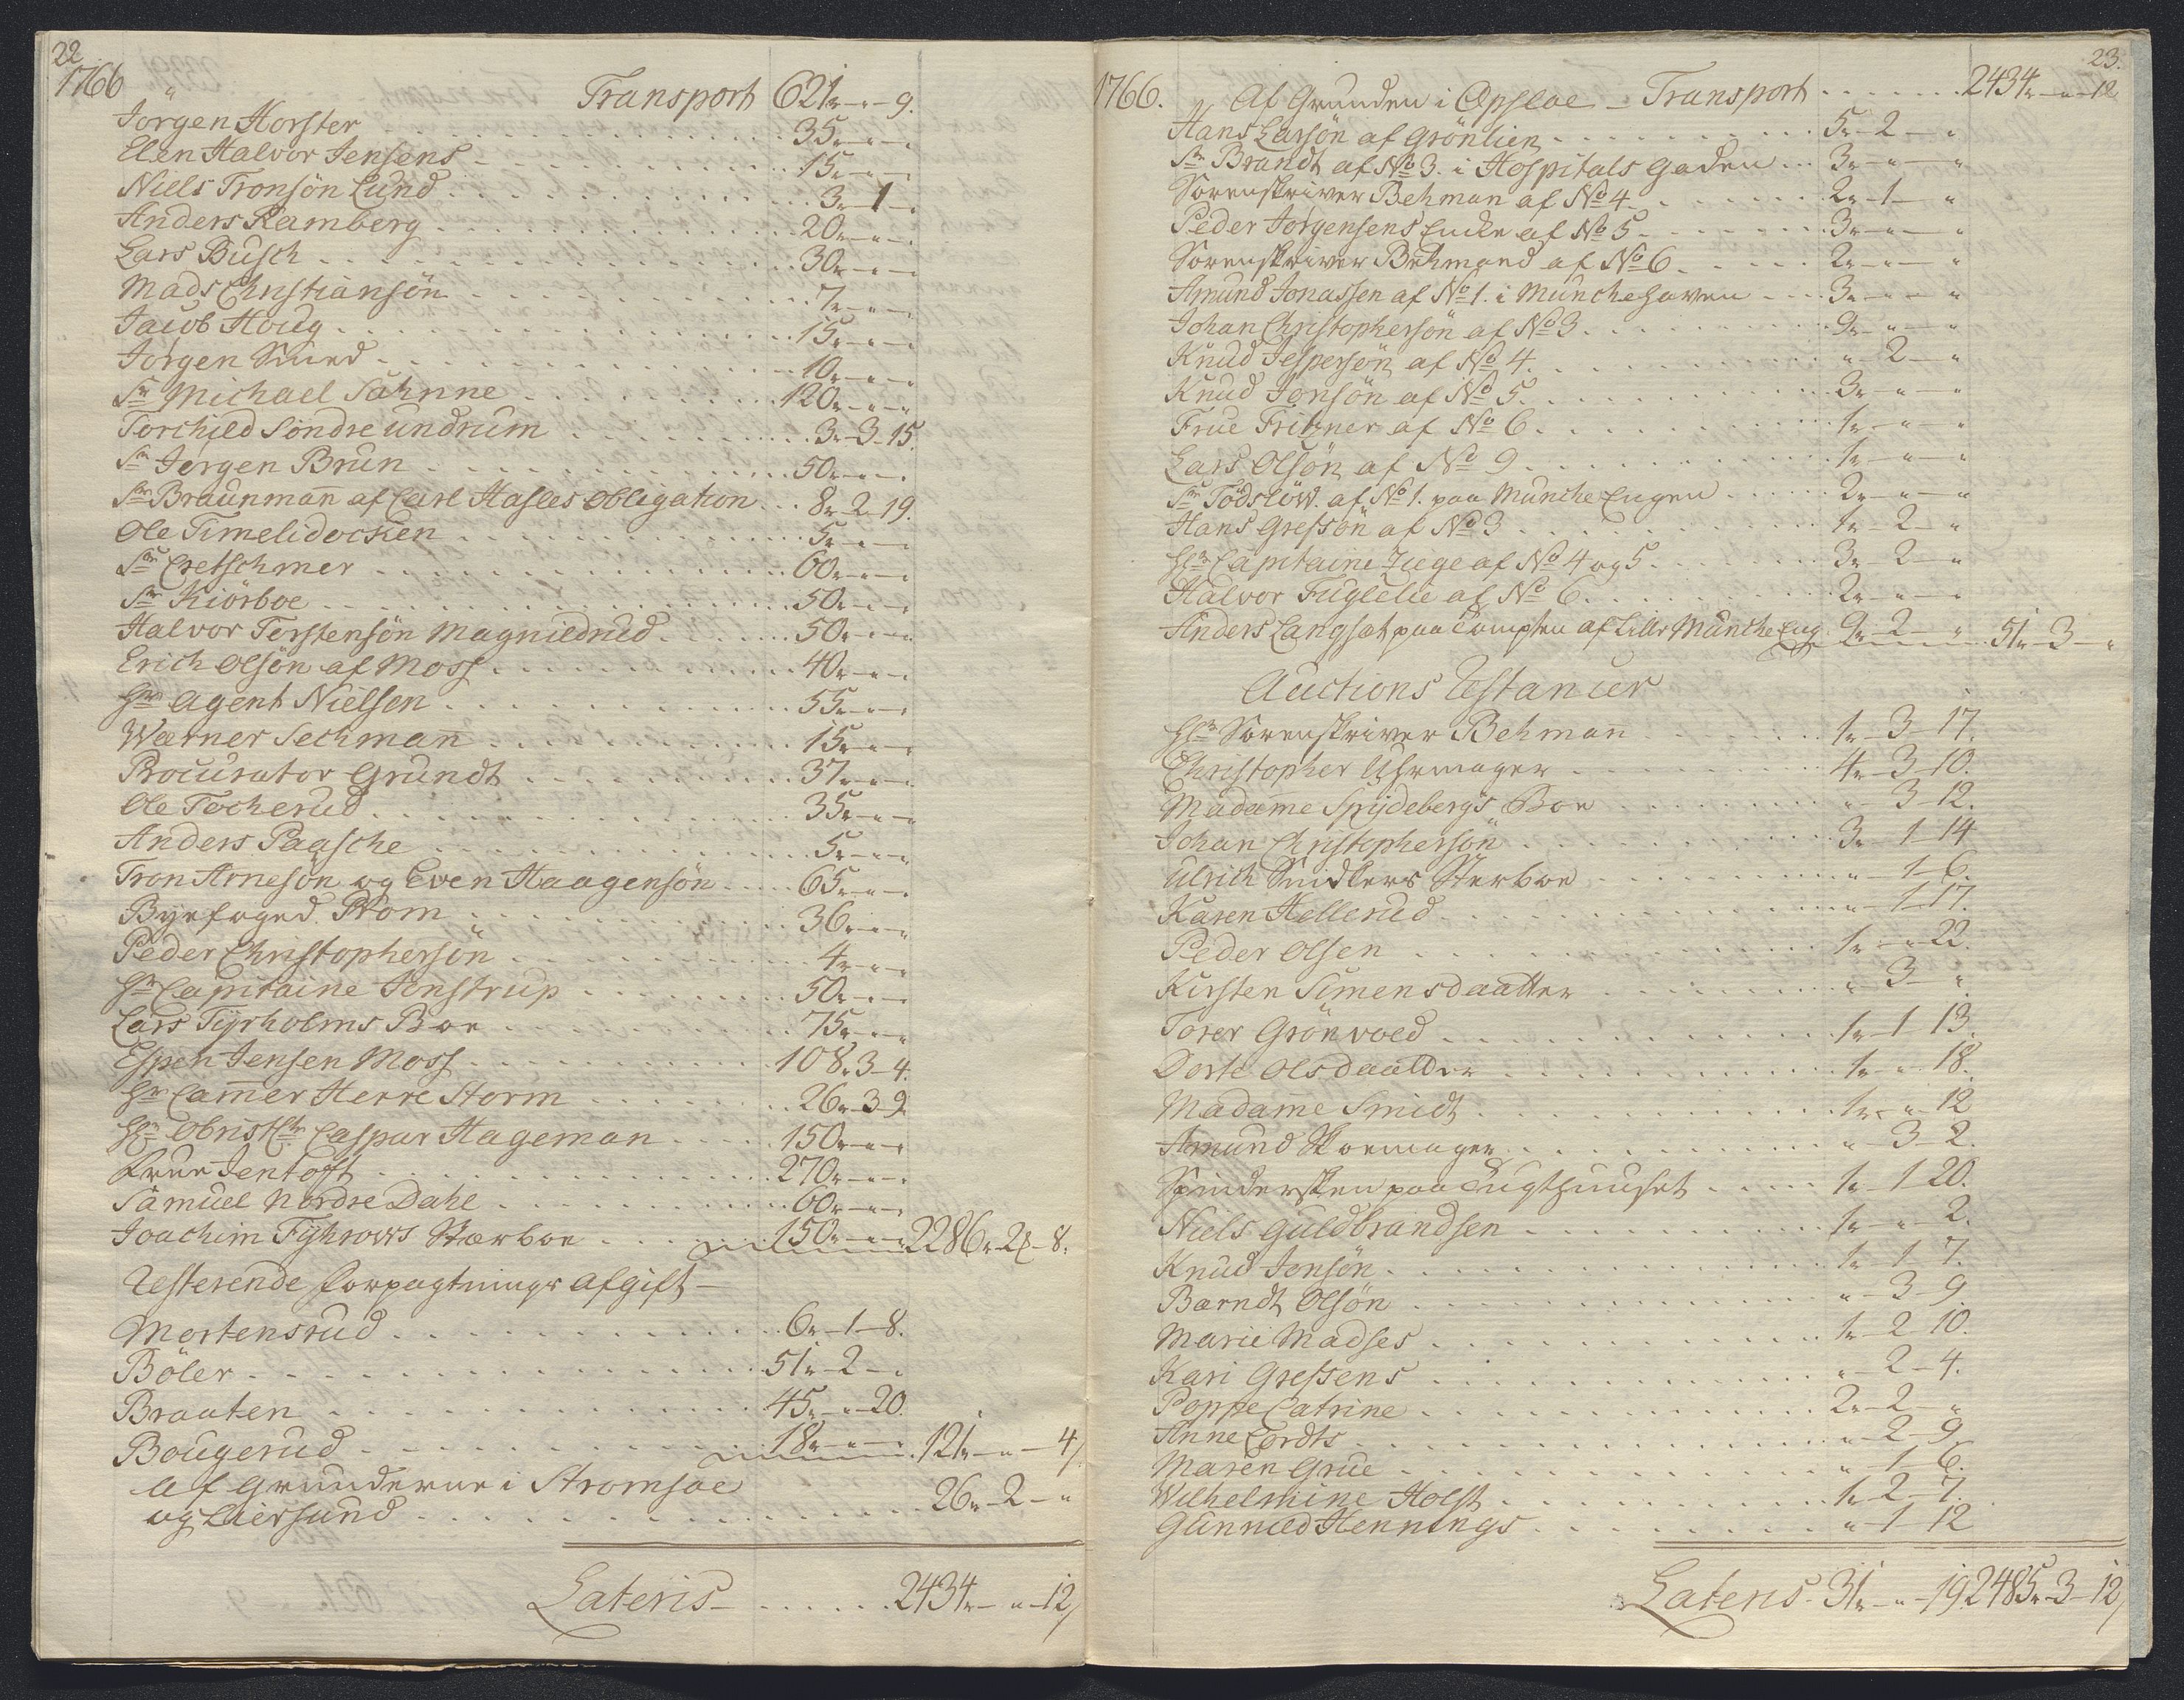 22.
1766
Transport 621„-„-9.
Jörgen Horster . . . 35„-„-„
Elen Halvor Jensens . . . 15„-„-„
Niels Tronsön Lund . . . 3„-1-„
Anders Ramberg . . . 20„-„-„
Lars Busch . . . 30„-„-„
Mads Christiansön . . . 7„-„-„
Jacob Houg . . . 15„-„-„
Jörgen Smed . . . 10„-„-„
Sr Michael Sahnne . . . 120„-„-„
Torchild Söndre undrum . . . 3„-3-15.
Sr Jørgen Brun . . . 50„-„-„
Sr Braunman̄ af Carl Hasles Obligation . . . 8„-2-19.
Ole Timelidocken . . . 5„-„-„
Sr Cretschmer . . . 60„-„-„
Sr Kiörboe . . . 50„-„-„
Halvor Torstensön Magnildrud . . . 50„-„-„
Erich Olsön af Moss . . . 40„-„-„
Hr Agent Nielsen . . . 55„-„-„
Wærner Sechman̄ . . . 15„-„-„
Procurator Grundt . . . 37„-„-„
Ole Tocherud . . . 35„-„-„
Anders Paasche . . . 5„-„-„
Tron Arnesön og Even Haagensön . . . 65„-„-„
Byefoged Prom . . . 36„-„-„
Peder Christophersön . . . 4„-„-„
Hr Capitaine Jenstrup . . . 50„-„-„
Lars Tyrholms Boe . . . 75„-„-„
Espen Jensen Moss . . . 108„3-4.
Hr Cam̄er Herre Storm . . . 26„-3-9.
Hr Obrist Ltr Caspar Hageman . . . 150„-„-„
Frue Jentofft . . . 270„-„-„
Samuel Nordre Dahl . . . 60„-„-„
Joachim Fyhrows Stærboe . . . 150„-„-„ 2286„-2-8.
Resterende forpagtnings afgift —
Mortensrud . . . 6„-1-8.
Böler . . . 51„-2-„
Braaten . . . 45„-„-20.
Bougerud . . . 18„-„-„ 121„-„-4/
Af Grunderne i Stromsöe
og Liersund . . . 26„-2-„
Lateris . . . 2434„-„-12/
23.
1766.
Af Grunden i Opsloe - Transport . . . 2434„-„-12
Hans Larsön af Grönlien . . . 5„-2-„
Sr Brandt af No 3. i Hospitals gaden . . . 3„-„-„
Sorenskriver Behman af No 4 . . . 2„-1-„
Peder Jörgensens Encke af No 5 . . . 3„-„-„
Sorenskriver Behmand af No 6 . . . 2„-„-„
Amund Jonassen af No 1. i Munchehaven . . . 3„-„-„
Johan Christophersön af No 3 . . . 9„-„-„
Knud Jespersön af No 4 . . . „-2-„
Knud Jonsön af No 5 . . . 3„-„-„
Frue Fritzner af No 6 . . . 1„-„-„
Lars Olsön af No 9 . . . 1„-„-„
Sr Tödslöw af No 1. paa Munche Engen . . . 2„-„-„
Hans Gressön af No 3 . . . 1„-2-„
Hr Capitaine Ziege af No 4 og 5 . . . 3„-2-„
Halvor Fuglelie af No 6 . . . 2„-„-„
Anders Langsat paa Tompten af Lille Munche Eng 9„-2-„ 51„-3-„
Auctions Restancer
Hr Sorenskriver Behman̄ . . . 1„-3-17.
Christopher Uhrmager . . . 4„-3-10.
Madame Spydebergs Boe . . . „-3-12.
Johan Christophersön . . . 3„-1-14
Ulrich Snidkers Sterboe . . . „-1-6.
Karen Hellerud . . . „-1-17.
Peder Olsen . . . 1„-„-22.
Kirsten Simensdaatter . . . „-3-„
Torer Grönvold . . . 1„-1-13.
Dorte Olsdaatter . . . 1„-„-18.
Madame Smidt . . . 1„-„-12
Amund Skoemager . . . „-3-2.
Spindersken paa Tugthuuset . . . 1„-1-20.
Niels Guldbrandsen . . . 1„-„-2.
Knud Jensön . . . 1„-1-7.
Barndt Olsön . . . „-3-9.
Marie Madses . . . 1„-2-10.
Kari Gressens . . . „-2-4.
Poppe Catrine . . . 2„-2-„
Anne Cordts . . . „-2-9.
Maren Grue . . . „-1-6.
Wilhelmine Holst . . . 1„-2-7.
Gunnild Hennings . . . „-1-12
Lateris - 31„-„-19. 2485„-3-12/